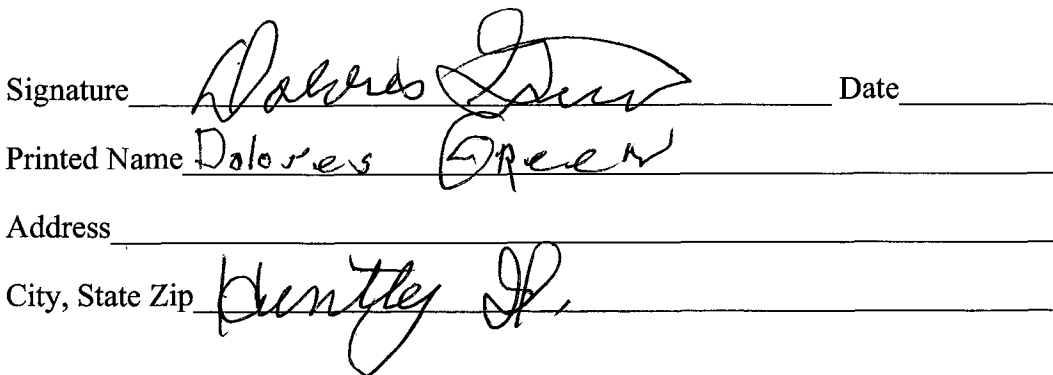 Signature Dolores Green Date
Printed Name Dolores Green
Address
City, State Zip Huntley Il.